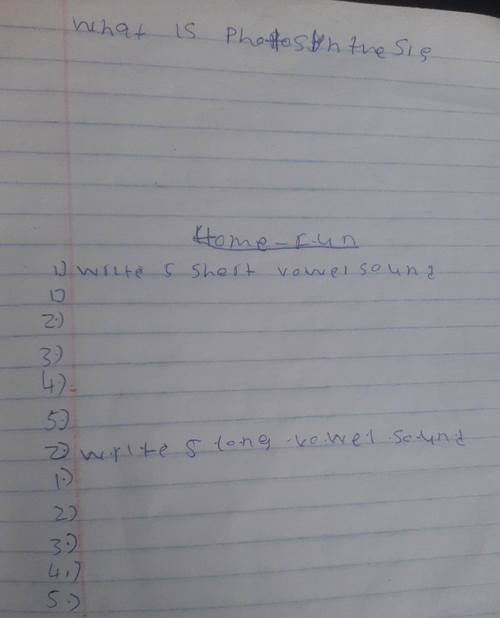 What is photosynthesis
Home-Fun
1) write 5 short vowel sound
1)
2)
3)
4)
5)
2) write 5 long vowel sound
1)
2)
3)
4)
5)